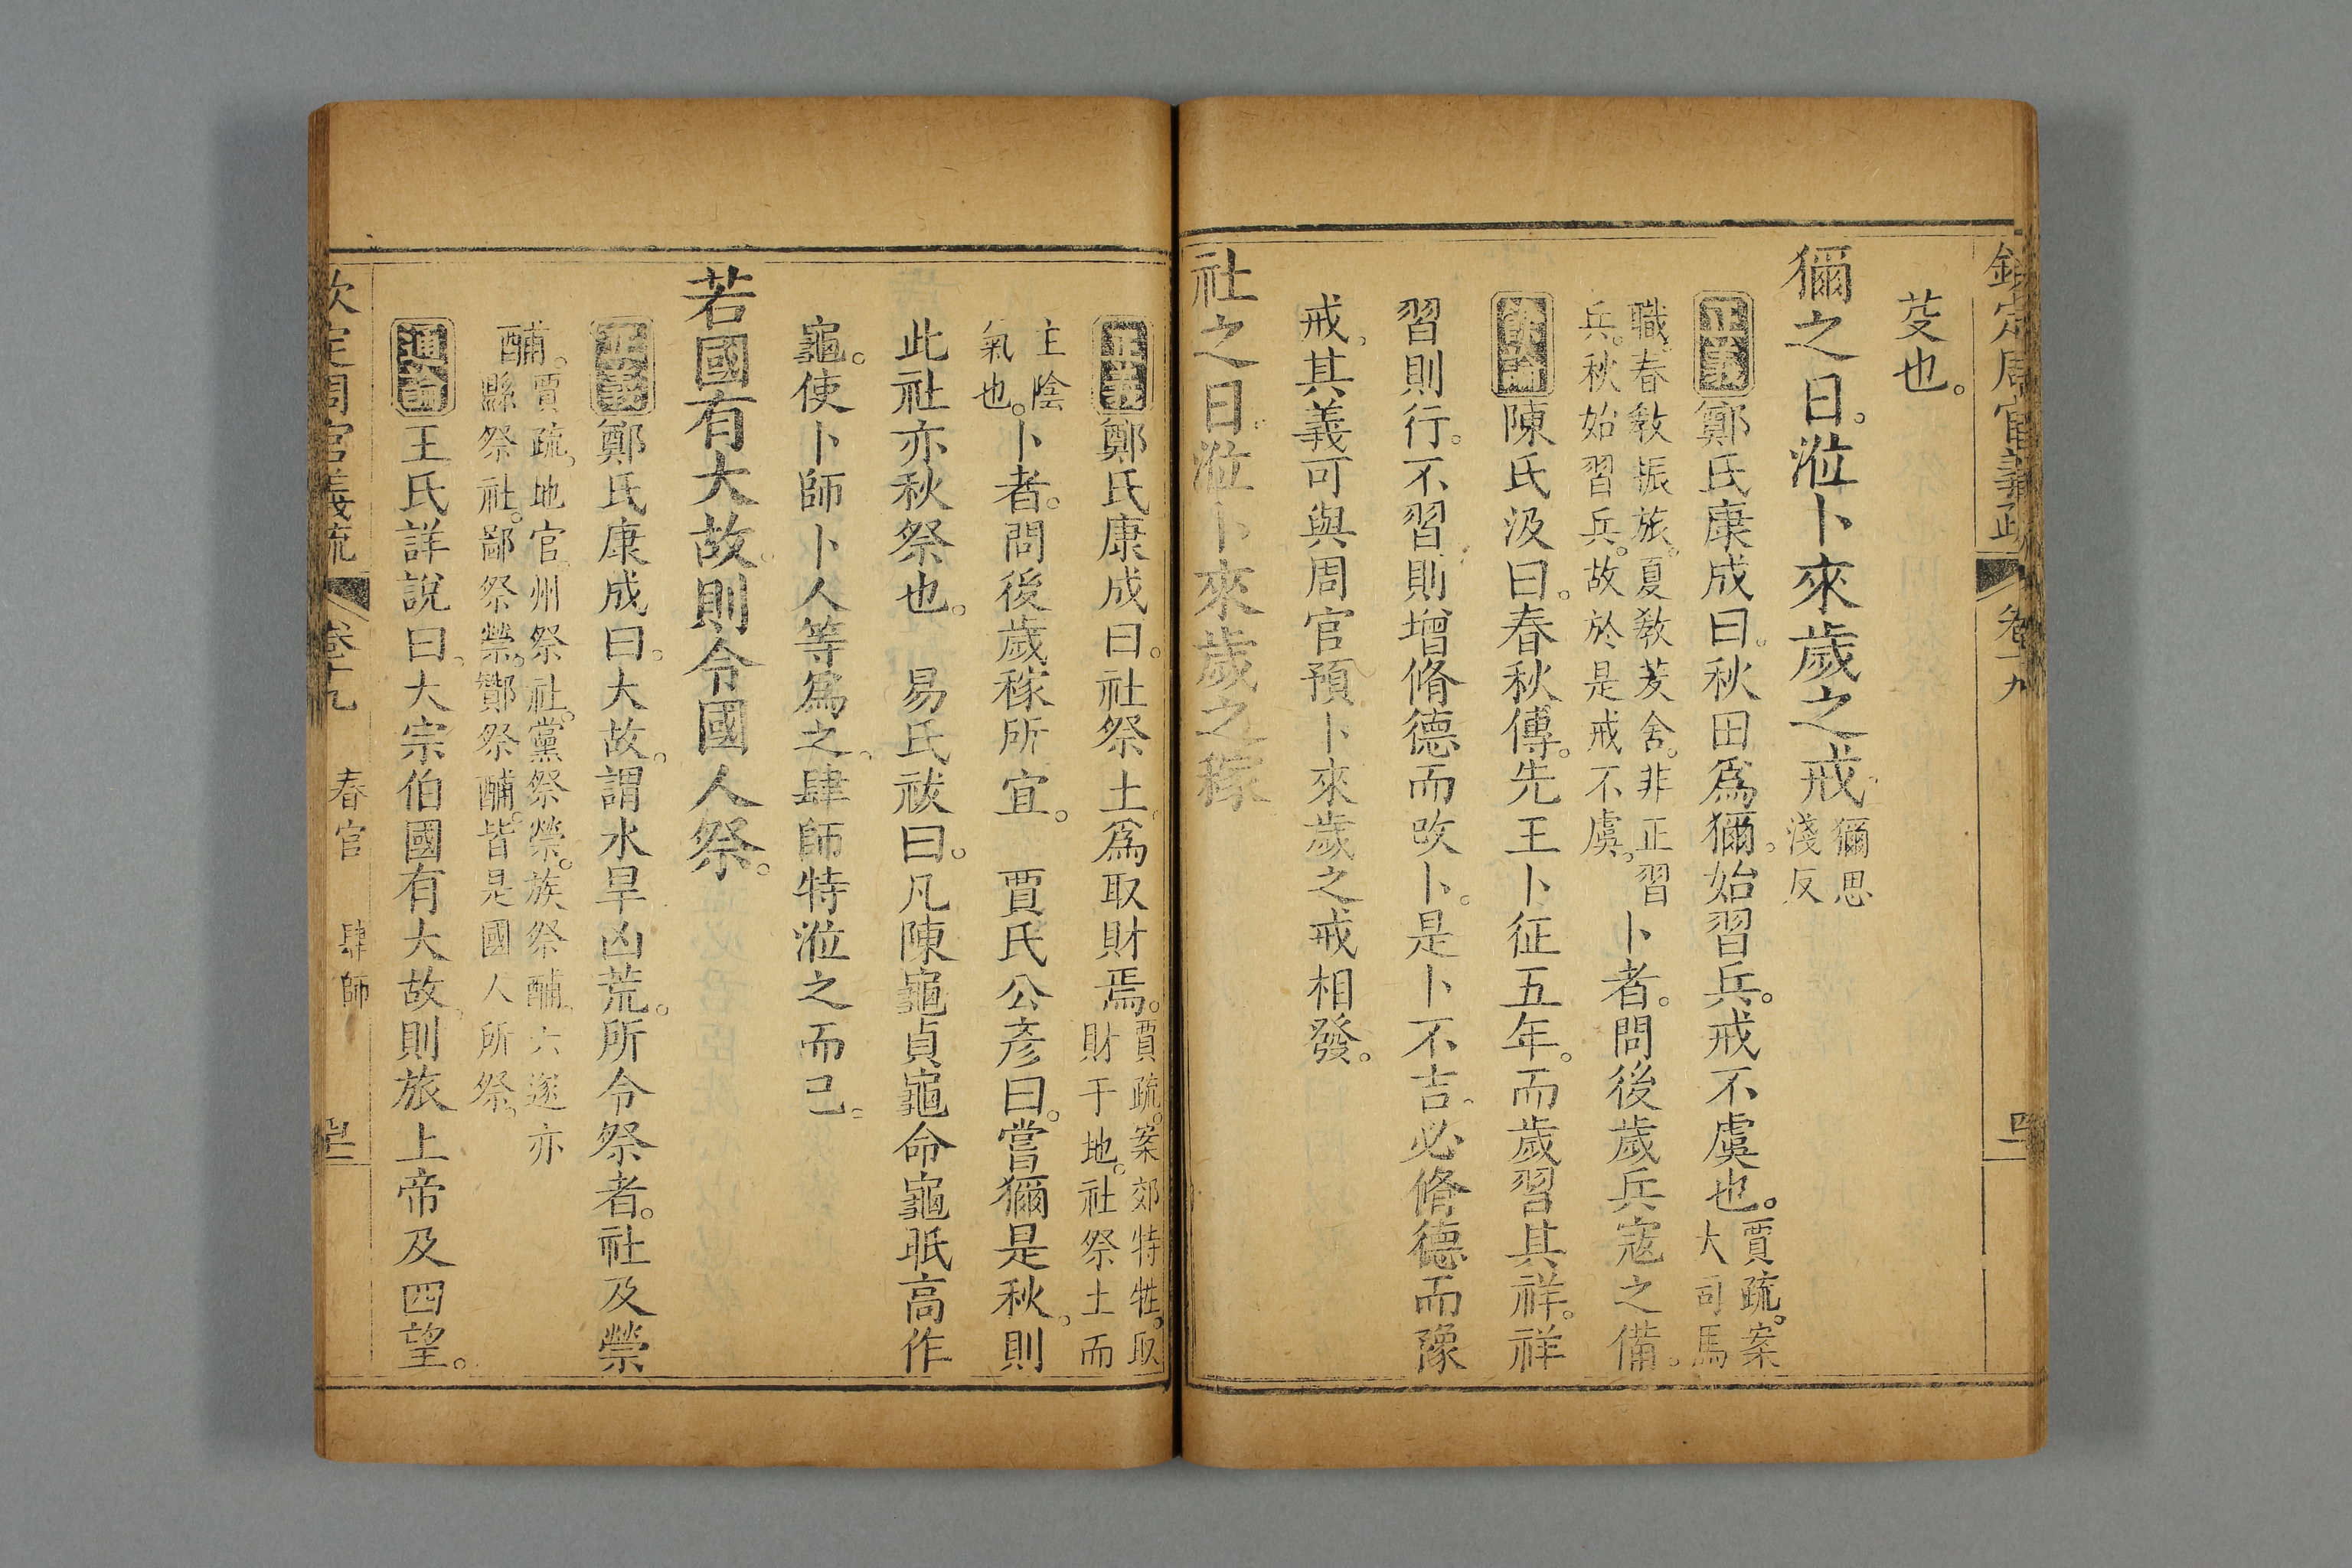 欽定周官義疏 卷十九
芟也。
獮之日。涖卜來歲之戒。獮思淺反
正義鄭氏康成曰。秋田爲獮。始習兵。戒不虞也。賈疏。案大司馬
職。春敎振旅。夏敎茇舍。非正習兵。秋始習兵。故於是戒不虞。卜者。問後歲兵寇之備。
餘論陳氏汲曰。春秋傳。先王卜征五年。而歲習其祥。祥
習則行。不習則增脩德而改卜。是卜不吉。必脩德而豫
戒。其義可與周官預卜來歲之戒相發。
社之日。涖卜來歲之稼
正義鄭氏康成曰。社祭土。爲取財焉。賈疏。案郊特牲。取財于地。社祭土而
主陰氣也。卜者。問後歲稼所宜。 賈氏公彥曰。嘗獮是秋。則
此社亦秋祭也。 易氏祓曰。凡陳龜貞龜命龜眡高作
龜。使卜師卜人等爲之。肆師特涖之而已。
若國有大故。則令國人祭。
正義鄭氏康成曰。大故。謂水旱凶荒。所令祭者。社及禜
酺。賈疏。地官。州祭社。黨祭禜。族祭酺。六遂亦縣祭社。鄙祭禜。酇祭酺。皆是國人所祭。
通論王氏詳說曰。大宗伯國有大故。則旅上帝及四望。
欽定周官義疏 卷十九 春官 肆師